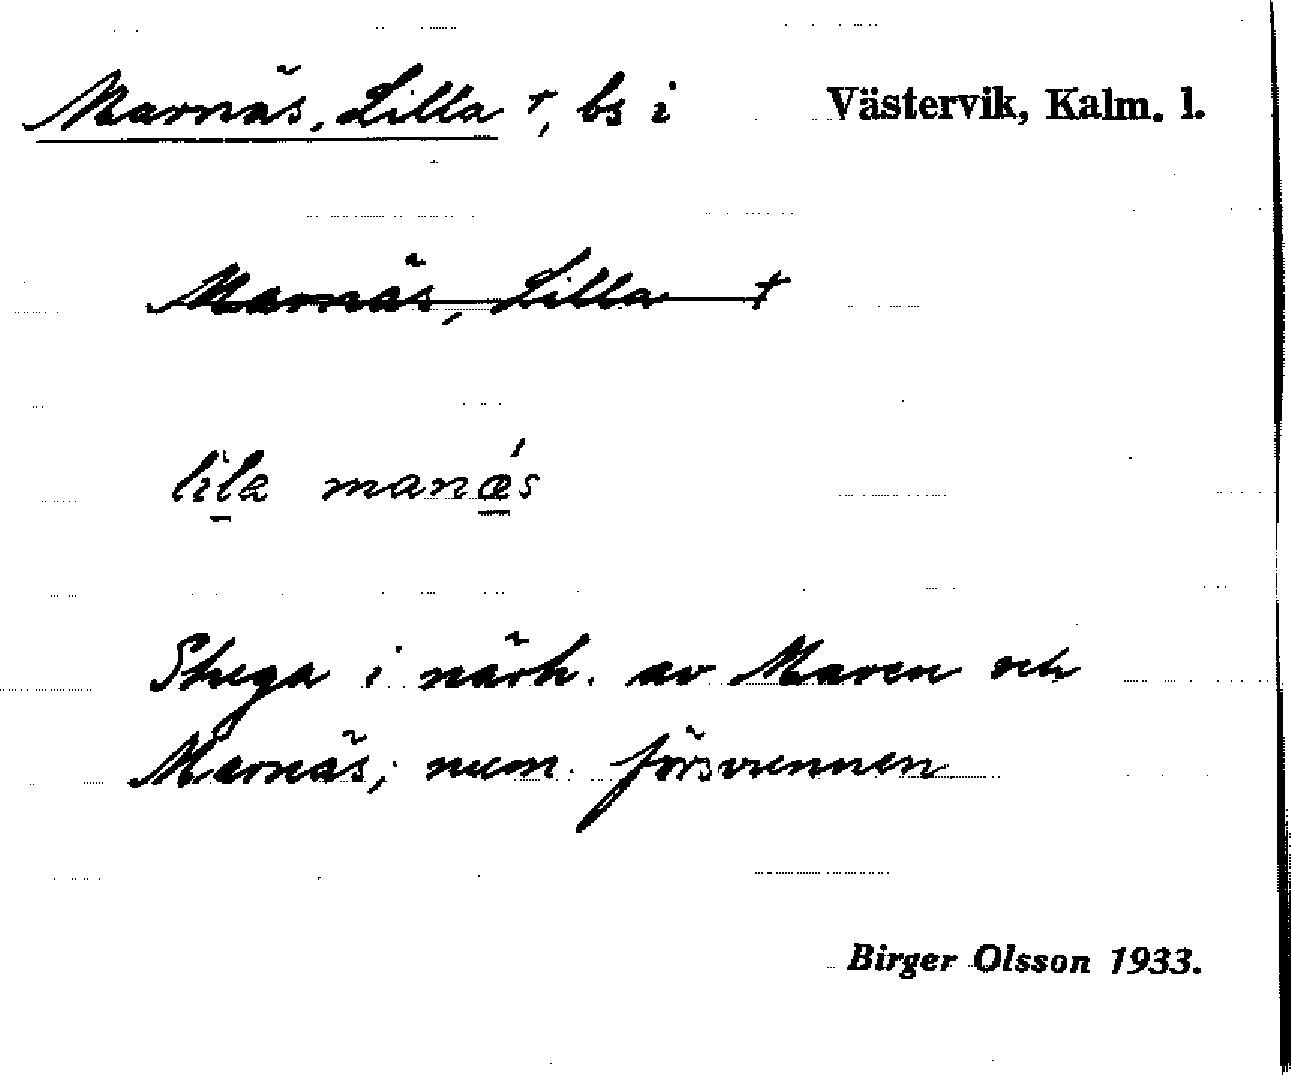 Marnäs, Lilla †, bs i Västervik, Kalm. l.
Marnäs, Lilla †
lila manǽs
Stuga i närh. av Maren och
Marnäs; num. försvunnen
Birger Olsson 1933.